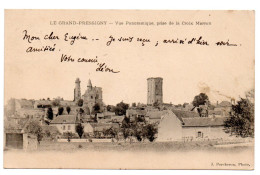 LE GRAND-PRESSIGNY — Vue Panoramique, prise de la Croix Marion
Mon cher Eugène — Je suis reçu, arrivé d'hier soir.
amitiés.
Votre cousin
Léon